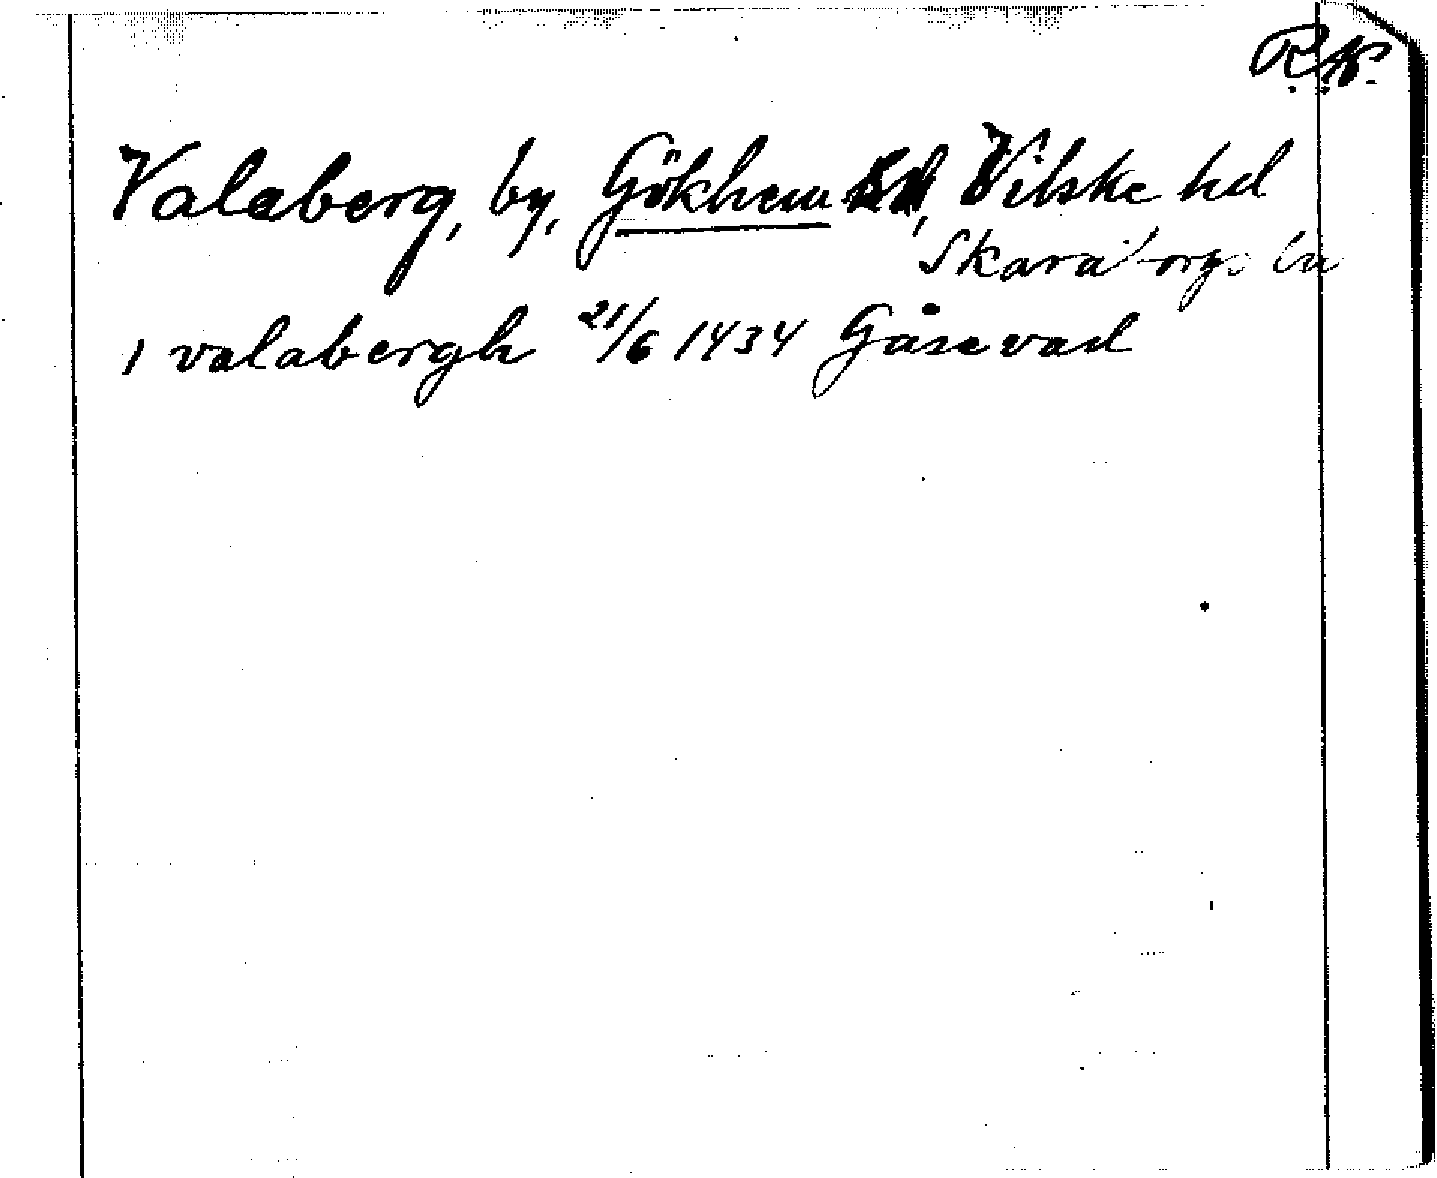 R.K.
Valaberg, by, Gökhem sn, Vilske hd
Skaraborgs län
i valabergh 21/6 1434 Gåsevad